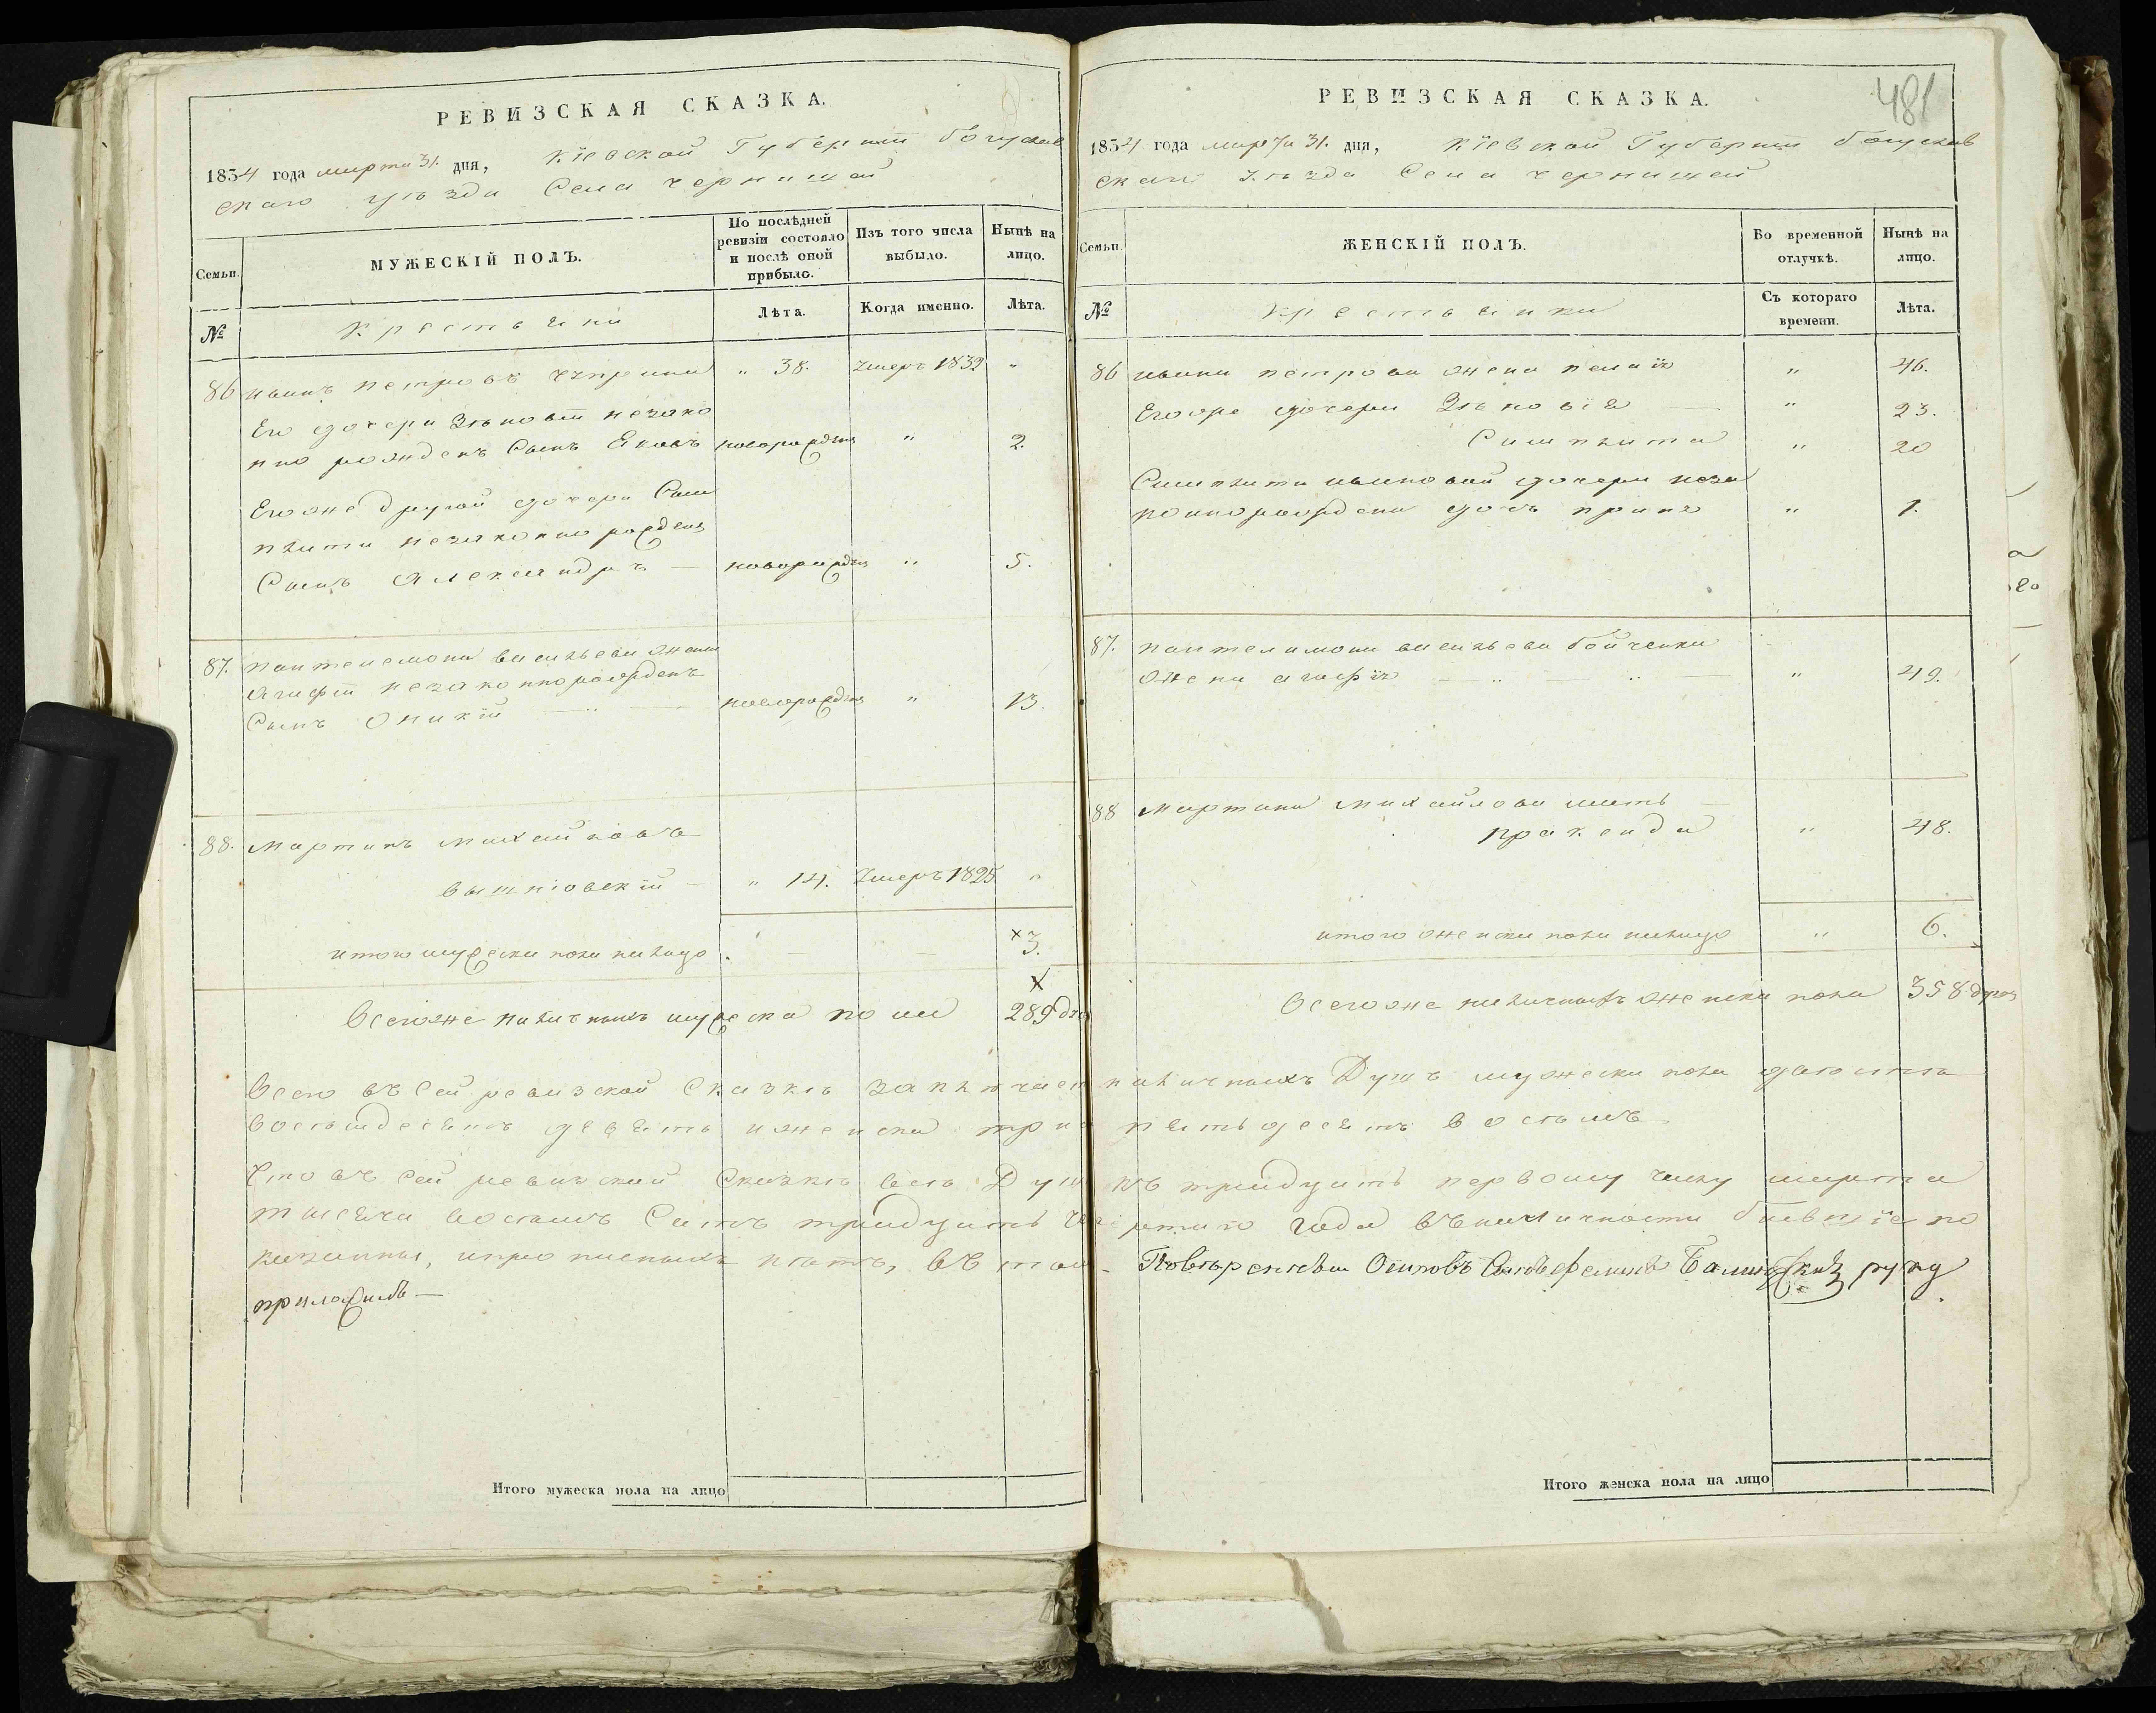 РЕВИЗСКАЯ СКАЗКА.
1834 года марта 31. дня, Кіевской Губерніи богуслав
скаго уѣзда Села чернишей
Семьи.
МУЖЕСКІЙ ПОЛЪ.
По послѣдней ревизіи состояло и послѣ оной прибыло.
Изъ того числа выбыло.
Нынѣ на лицо.
№
Крестьяни
Лѣта.
Когда именно.
Лѣта.
86 иванъ петровъ чуприна " 38. Умеръ 1832 "
Его дочери Зѣновіи незако
нно рожденъ Сынъ Яковъ новорожден " 2.
Егоже другой дочери Сам
пкити незаконно рожден
Сынъ Александръ — новорожден " 5.
87. пантелемона васильева жени
Агафіи незаконнорожденъ
Сынъ Оникій — " — новорожден " 13.
88. Мартинъ Михайловъ
вышніовскій — " 14. Умеръ 1825 "
итого мужеска пола налицо . — — ×3.
×
Всегоже наличныхъ мужеска пола 289 ду
РЕВИЗСКАЯ СКАЗКА.
481
1834 года марта 31. дня, Кіевской Губерніи богуслав
скаго Уѣзда Села чернишей
Семьи.
ЖЕНСКІЙ ПОЛЪ.
Во временной отлучкѣ.
Нынѣ на лицо.
№
крестьянки
Съ котораго времени.
Лѣта.
86 ивана петрова жена " 46.
Егоже дочери Зѣновія — " 23.
Сампкита " 20
Сампкити ивановой дочери неза
коннорождена дочь " 1.
87. пантелимона васильева бойченка
жена агафія — " — " — " 49.
88 мартина михайлова мать —
пракседа " 48.
итого женска пола налицо " 6.
Всегоже наличныхъ женска пола 358 душ
Всего въ Сей ревизской Сказкѣ заключает наличныхъ Душъ мужеска пола двѣста
восьмдесятъ девять и женска триста пятьдесятъ восемь
Что въ Сей ревизской Сказкѣ всѣ Души къ тридцать первому числу марта
тысяча восемь Сотъ тридцать четвертаго года въ наличности бывшіе по
казанны, и прописныхъ нѣтъ, въ том - Повѣренный Осиповъ Сынъ руку
приложилъ —
Итого мужеска пола на лицо
Итого женска пола на лицо